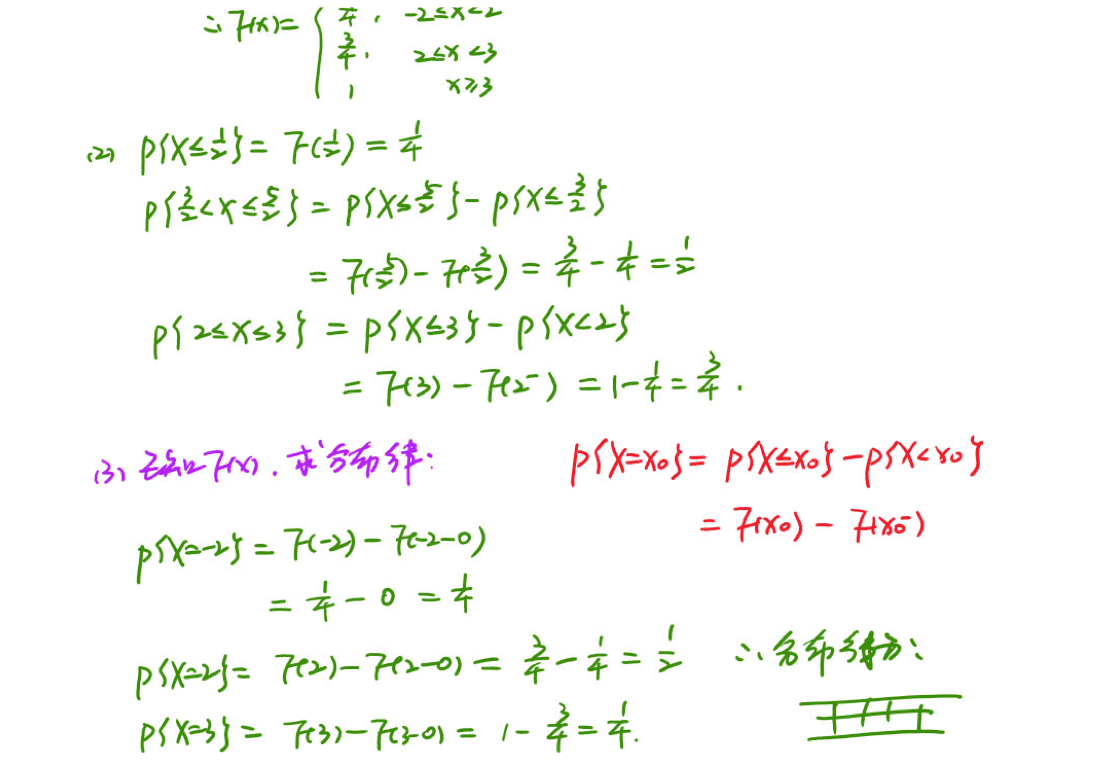 ∴ F(x) = { 1/4, -2≤x<2
3/4, 2≤x<3
1 x≥3
(2) P{X≤1/2} = F(1/2) = 1/4
P{3/2<X≤5/2} = P{X≤5/2} - P{X≤3/2}
= F(5/2) - F(3/2) = 3/4 - 1/4 = 1/2
P{2≤X≤3} = P{X≤3} - P{X<2}
= F(3) - F(2⁻) = 1 - 1/4 = 3/4.
(3) 已知F(x). 求分布律:
P{X=x₀} = P{X≤x₀} - P{X<x₀}
= F(x₀) - F(x₀⁻)
P{X=-2} = F(-2) - F(-2-0)
= 1/4 - 0 = 1/4
P{X=2} = F(2) - F(2-0) = 3/4 - 1/4 = 1/2
∴ 分布律为:
P{X=3} = F(3) - F(3-0) = 1 - 3/4 = 1/4.